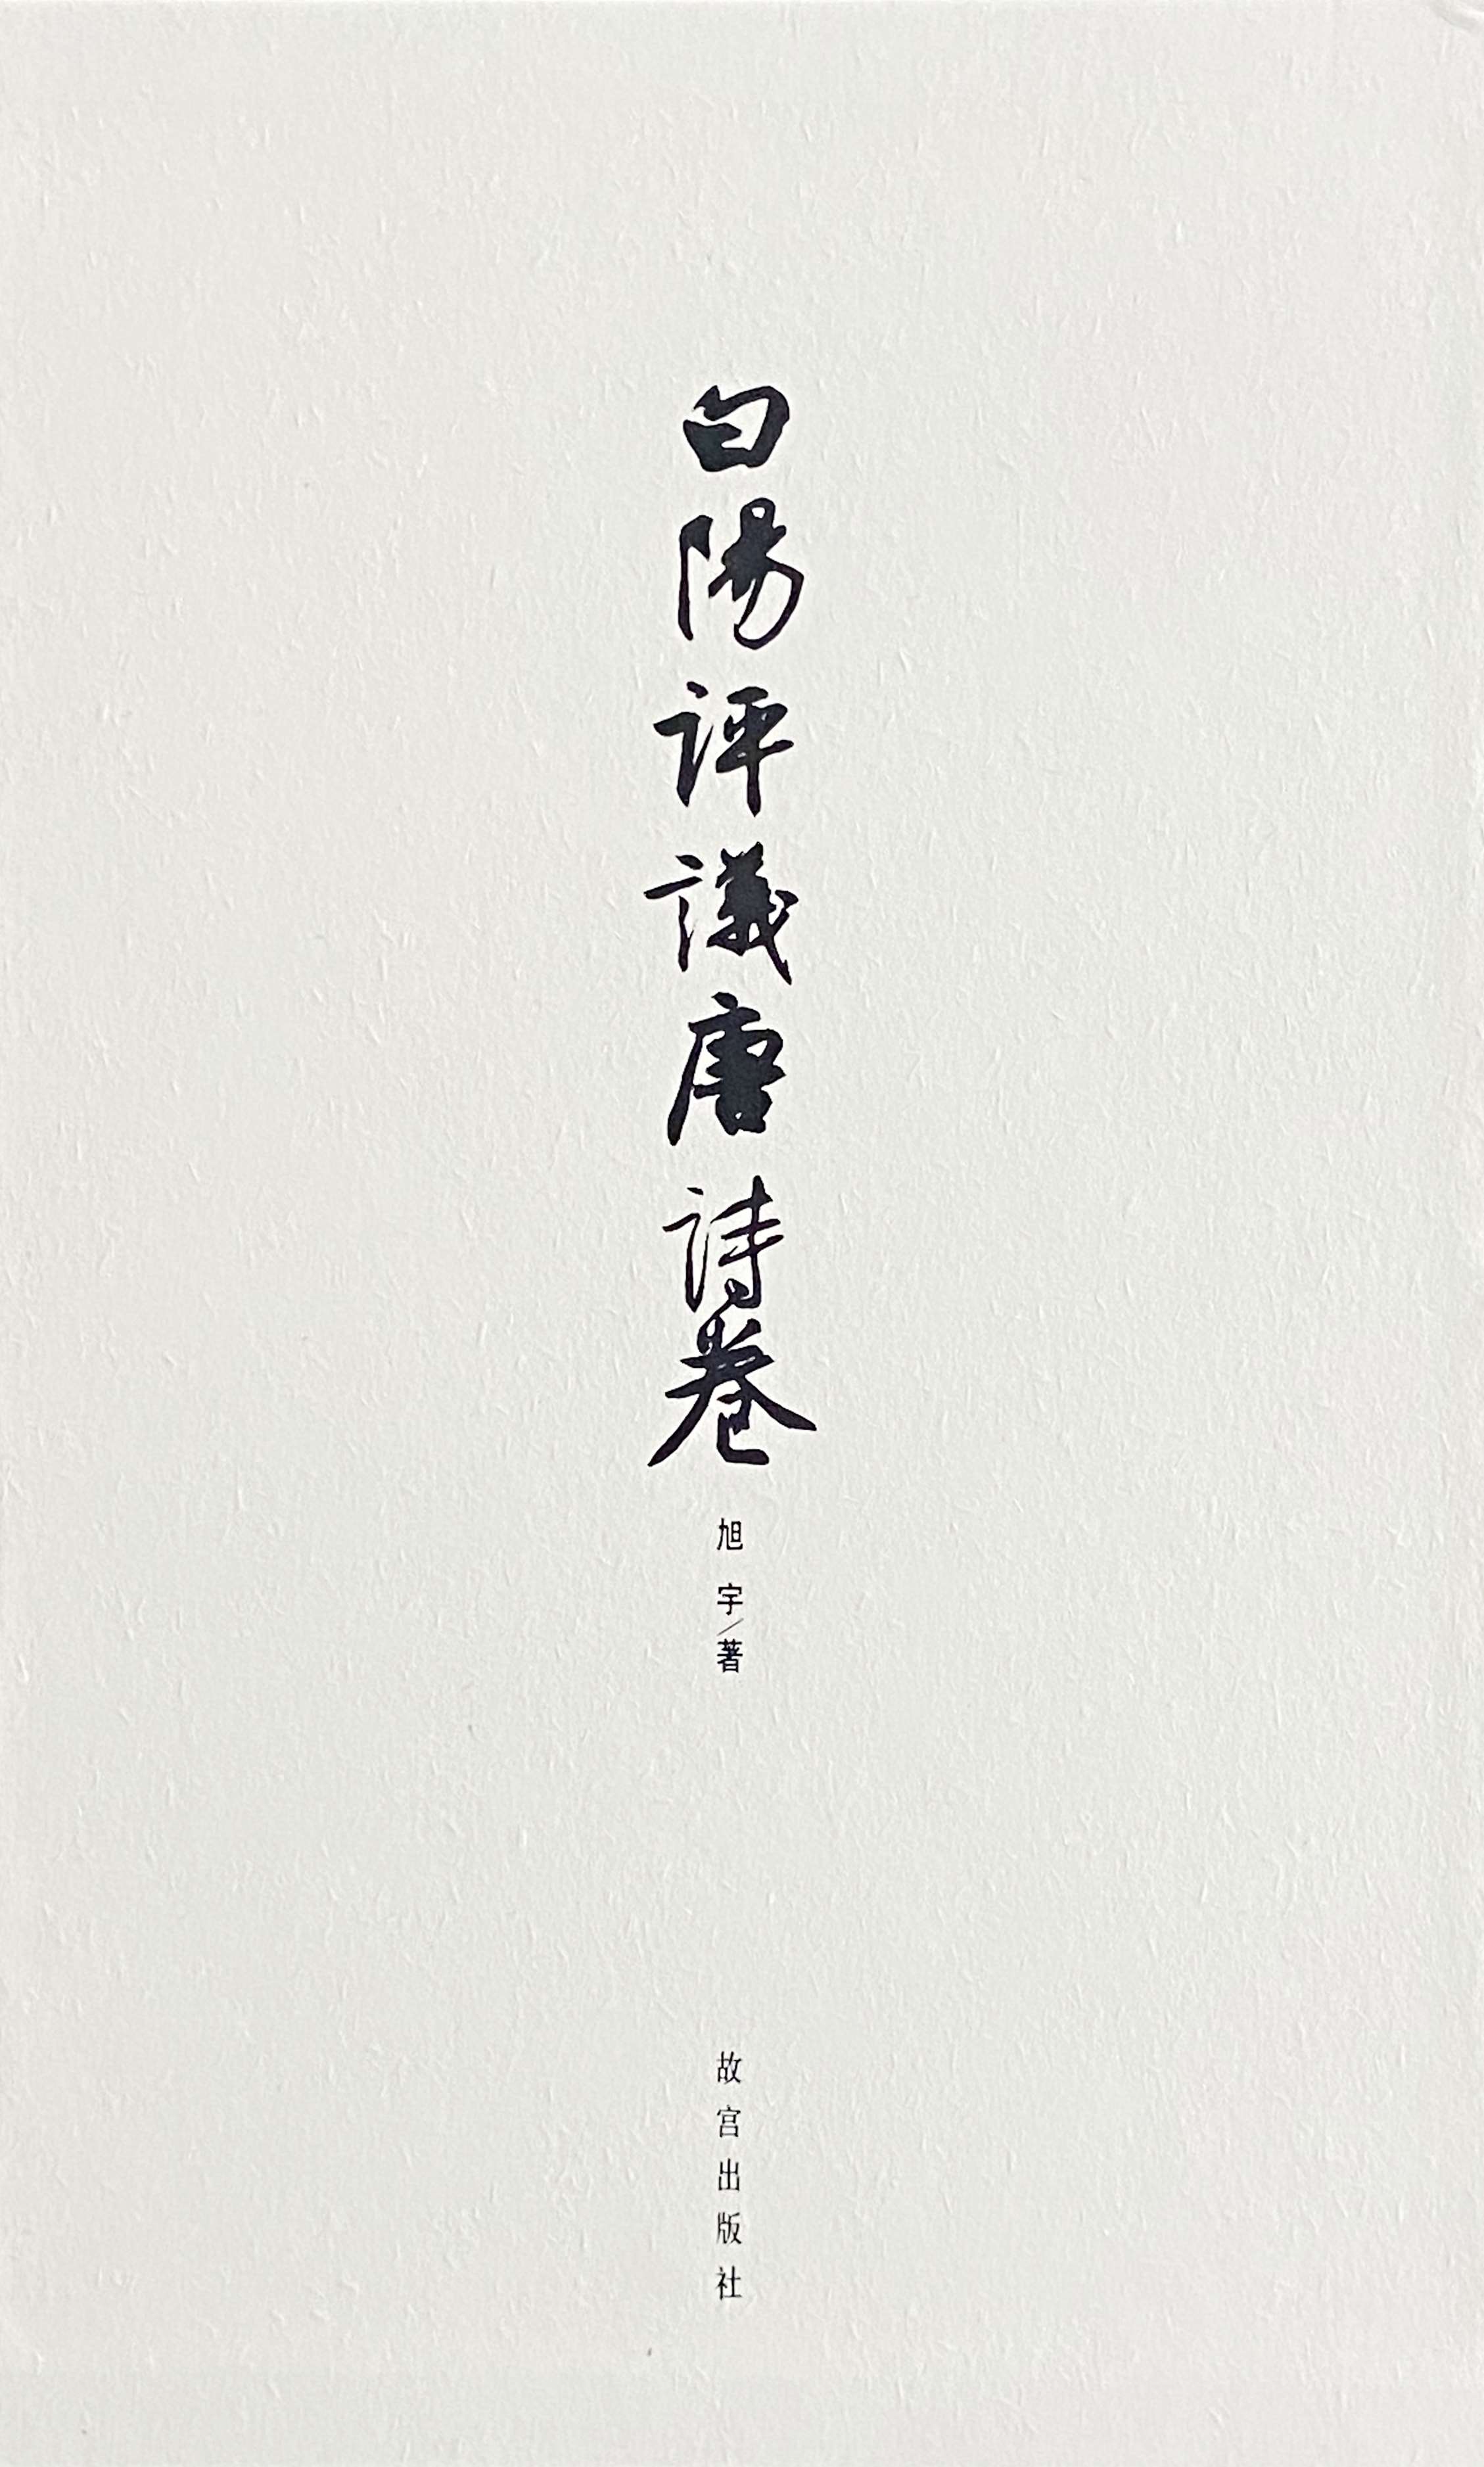 白陽評議唐詩卷
旭宇/著
故宫出版社